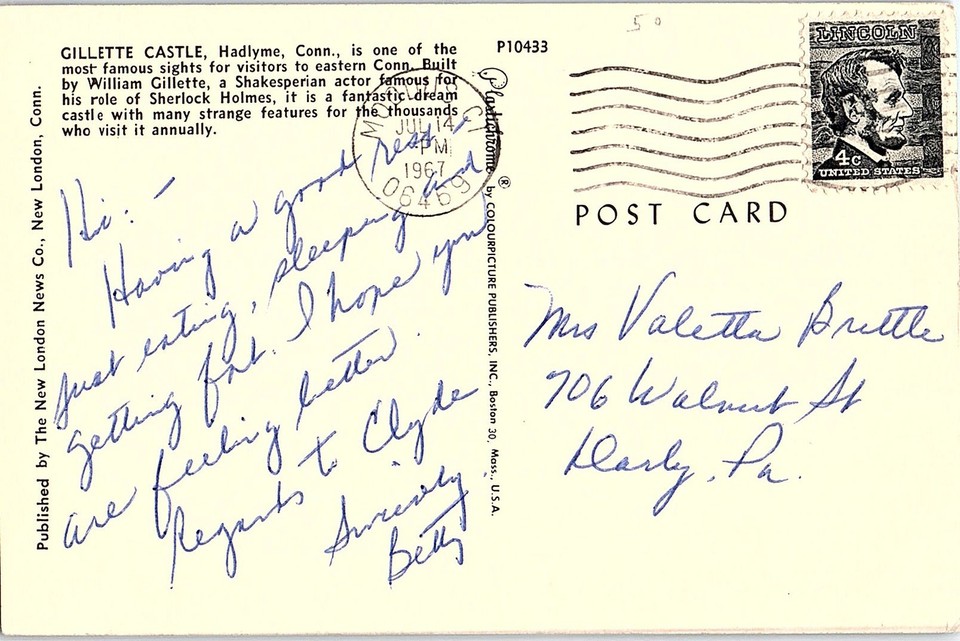 GILLETTE CASTLE, Hadlyme, Conn., is one of the
most famous sights for visitors to eastern Conn. Built
by William Gillette, a Shakesperian actor famous for
his role of Sherlock Holmes, it is a fantastic dream
castle with many strange features for the thousands
who visit it annually.
P10433
Published by The New London News Co., New London, Conn.
Plastichrome ® by COLOURPICTURE PUBLISHERS, INC., Boston 30, Mass., U.S.A.
JUL 14
PM
1967
06469
50
LINCOLN
4c
UNITED STATES
POST CARD
Hi: —
Having a good rest —
Just eating, sleeping and
getting fat. I hope you
are feeling better.
Regards to Clyde
Sincerely
Betty
Mrs Valetta Brittle
706 Walnut St
Darby, Pa.